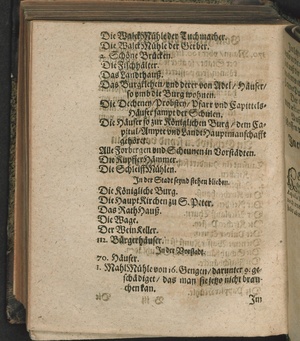 Die WalckMühle der Tuchmacher.
Die WalckMühle der Gerber.
2. Schöne Brücken.
Die Fischhälter.
Das Landthauß.
Das Burgklehen/ und derer von Adel/ Häuser/
so umb die Burg wohnen.
Die Dechaney/ Probstey/ Pfarr und Capittels-
Häuser sampt der Schulen.
Die Häuser so zur Königlichen Burg/ dem Ca-
pitul/ Ampte und LandsHauptmanschafft
gehöret.
Alle Vorbergen und Scheunen in Vorstädten.
Die KupfferHämmer.
Die SchleiffMühlen.
In der Stadt seynd stehen blieben.
Die Königliche Burg.
Die HauptKirchen zu S. Peter.
Das RathHauß.
Die Wage.
Der WeinKeller.
112. Bürgerhäuser.
In der Vorstadt.
70. Häuser.
1. MahlMühle von 16. Gengen/ darunter 9. ge-
schädiget/ das man sie jetzo nicht brau-
chen kan.
Im